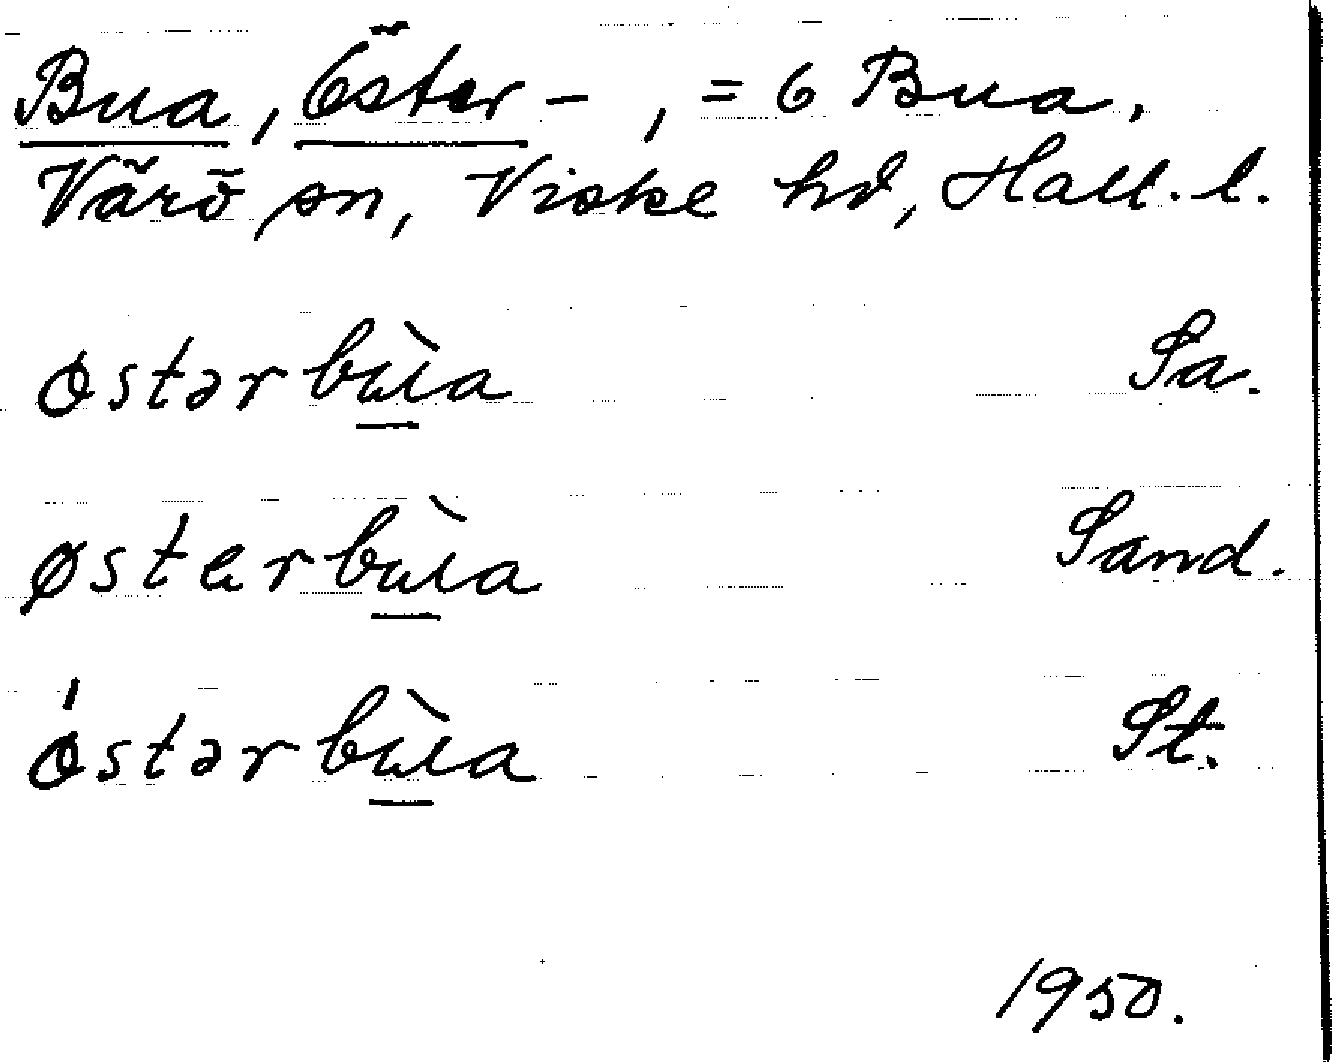 Bua, Öster-, = 6 Bua.
Värö sn, Viske hd, Hall. l.
østərbùa Sa.
østarbùa Sand.
ǿstərbùa St.
1950.